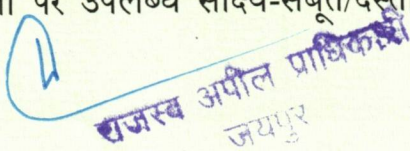 पर उपलब्ध साक्ष्य-सबूत/दस्त
राजस्व अपील प्राधिकारी
जयपुर